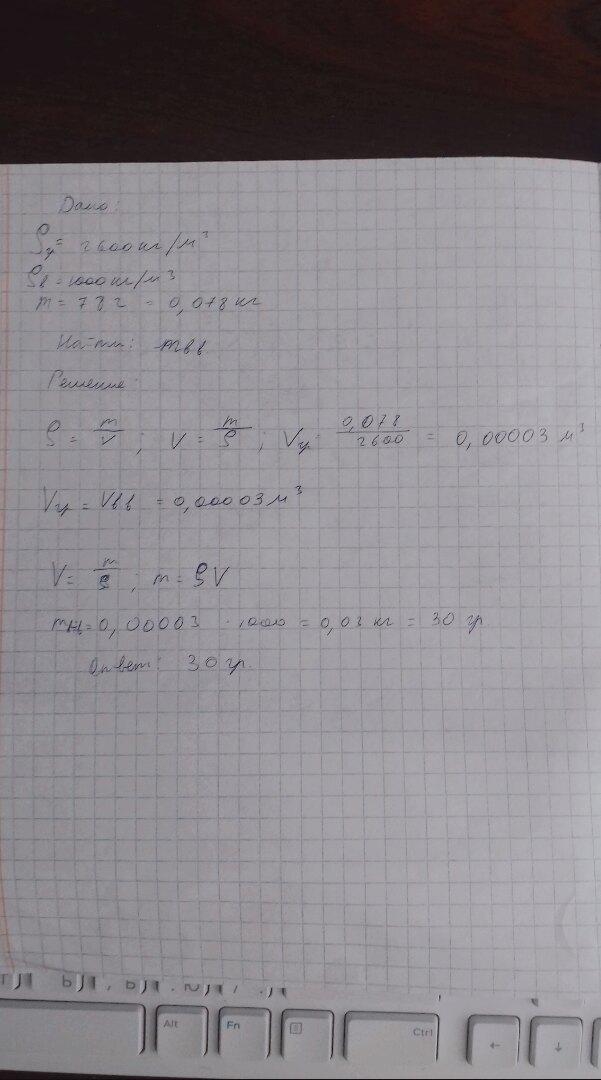 Дано:
ρц = 2600 кг/м³
ρв = 1000 кг/м³
m = 78 г = 0,078 кг
Найти: mвв
Решение:
ρ = m/V ; V = m/ρ ; Vц = 0,078/2600 = 0,00003 м³
Vц = Vвв = 0,00003 м³
V = m/ρ ; m = ρV
mн = 0,00003 · 1000 = 0,03 кг = 30 гр
Ответ: 30 гр.
Alt
Fn
Ctrl
←
↓